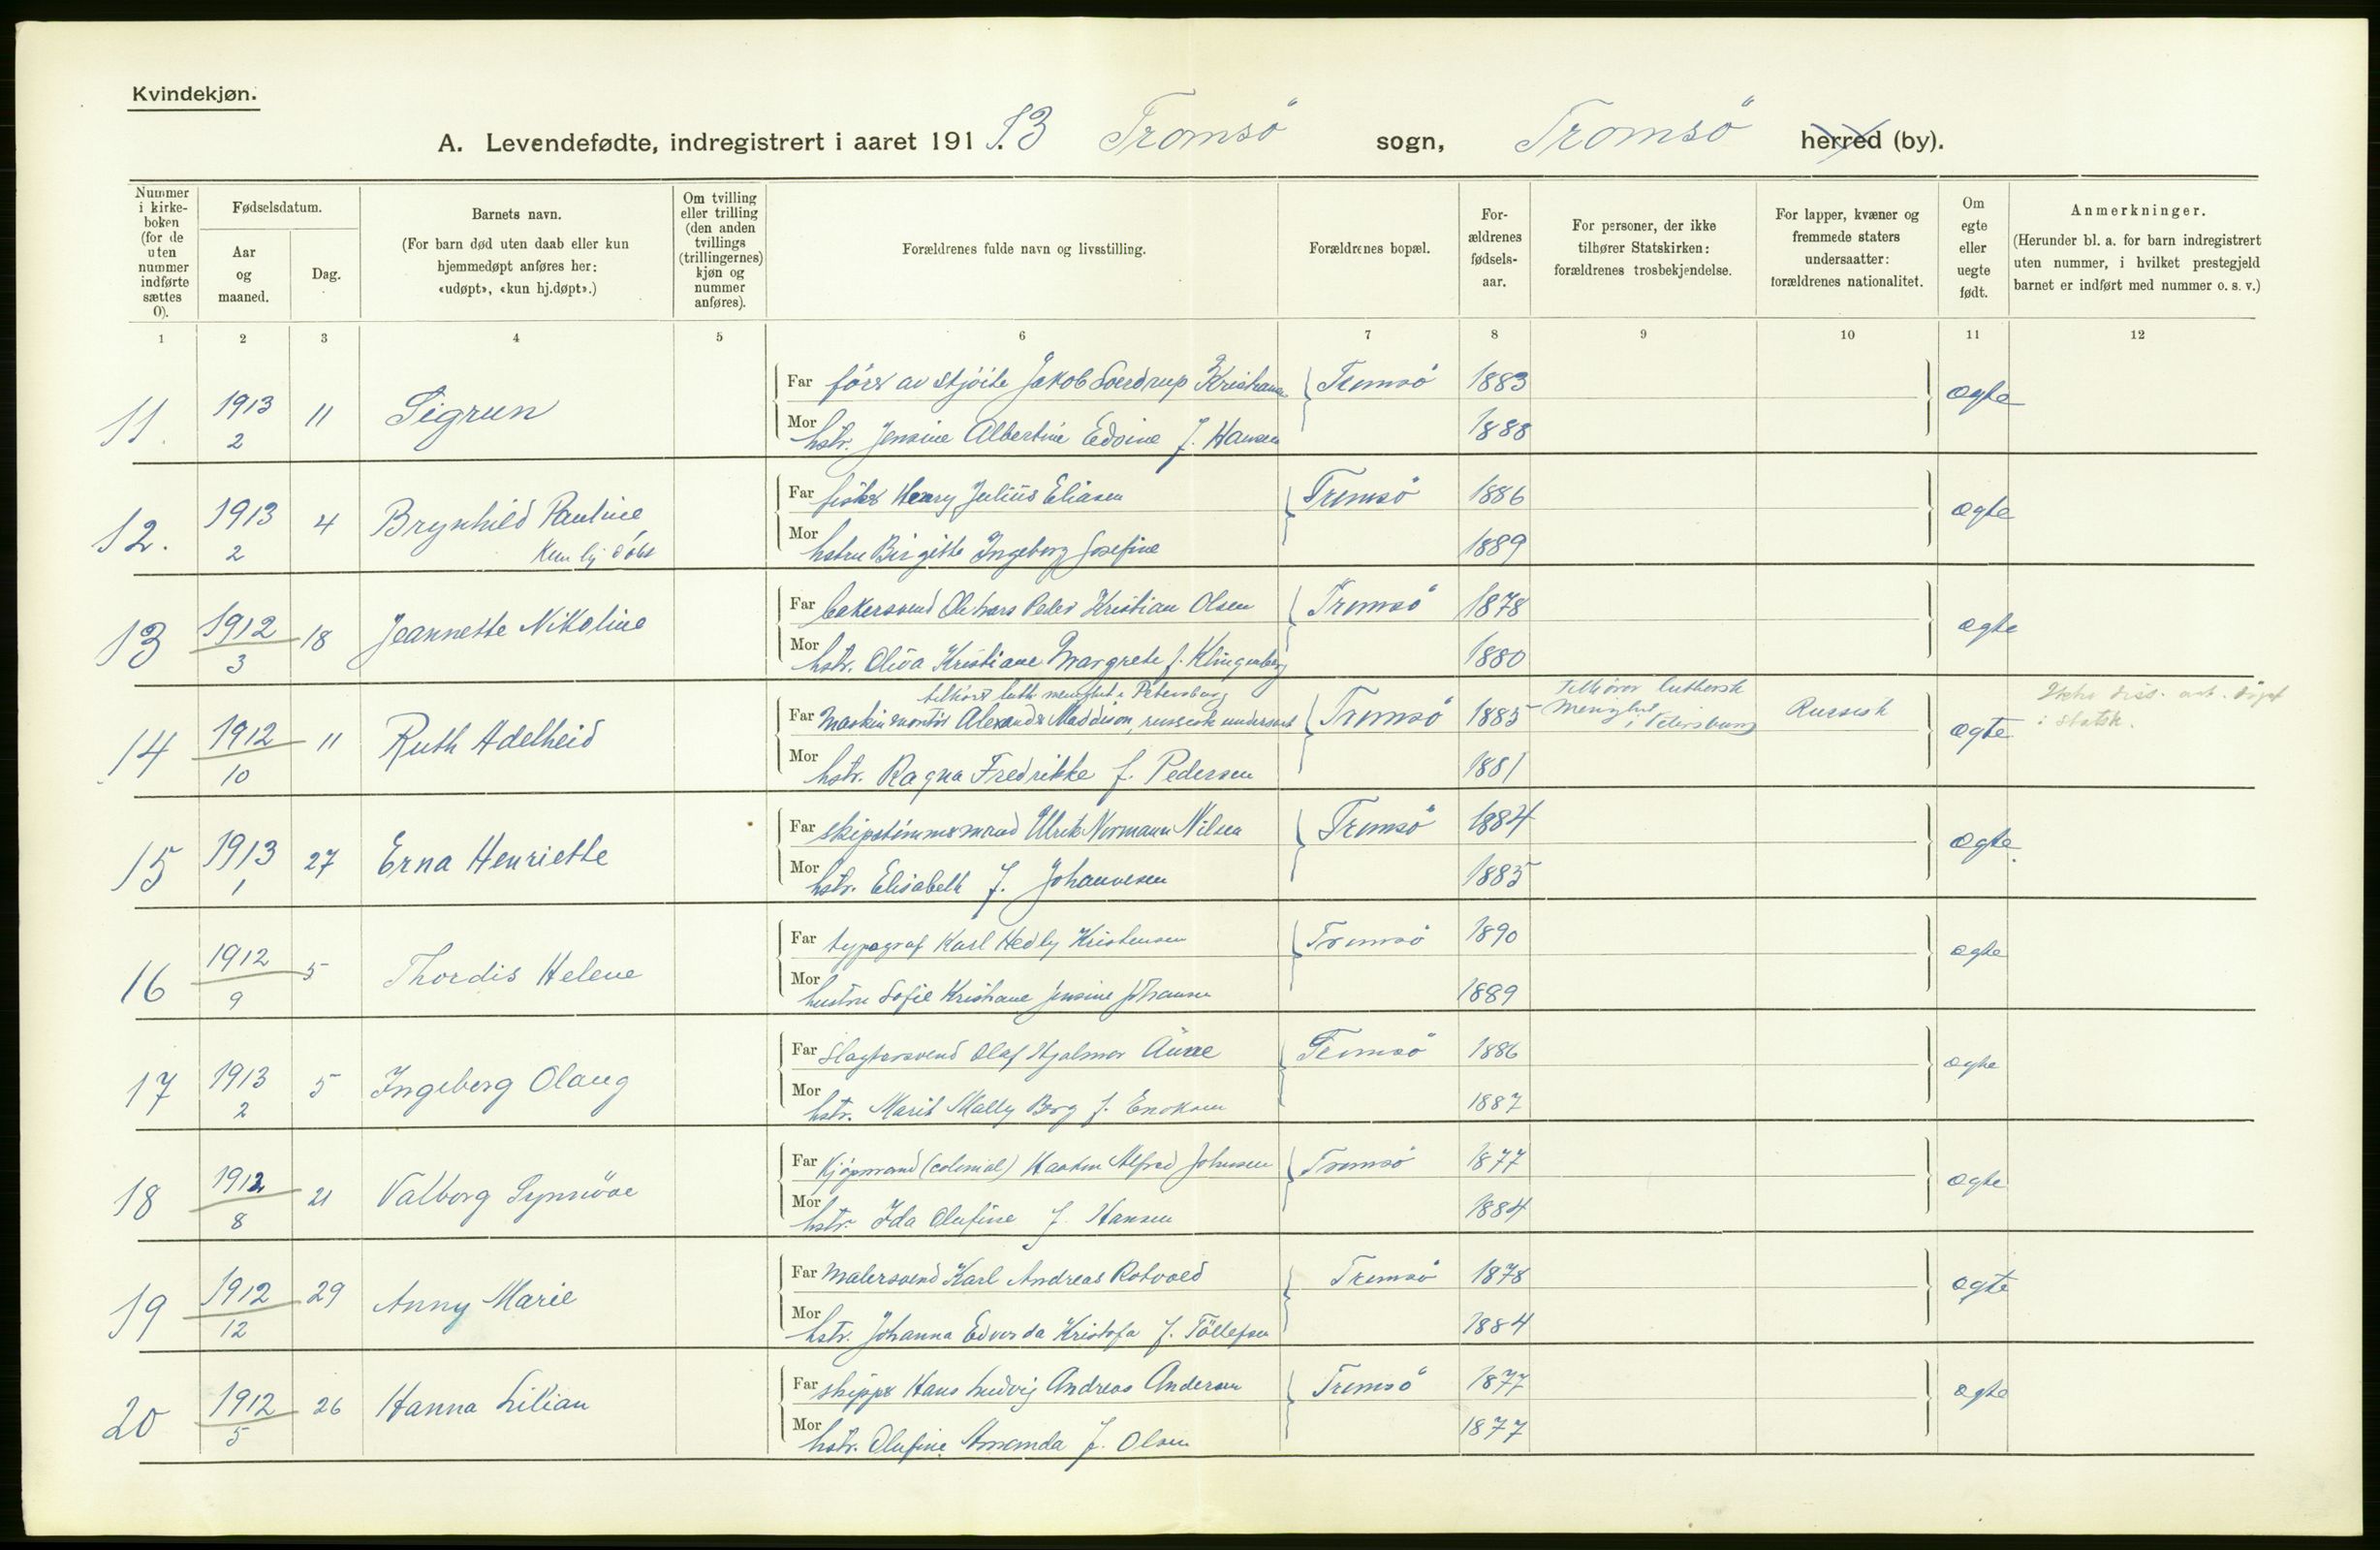 Kvindekjøn.
A. Levendefødte, indregistrert i aaret 191 13. Tromsö sogn, Tromsö herred (by).
Nummer i kirkeboken (for de uten nummer indførte sættes 0).
Fødselsdatum.
Aar og maaned.
Dag.
Barnets navn.
(For barn død uten daab eller kun hjemmedøpt anføres her: «udøpt», «kun hj.døpt».)
Om tvilling eller trilling (den anden tvillings (trillingernes) kjøn og nummer anføres).
Forældrenes fulde navn og livsstilling.
Forældrenes bopæl.
Forældrenes fødselsaar.
For personer, der ikke tilhører Statskirken: forældrenes trosbekjendelse.
For lapper, kvæner og fremmede staters undersaatter: forældrenes nationalitet.
Om egte eller uegte født.
Anmerkninger.
(Herunder bl. a. for barn indregistrert uten nummer, i hvilket prestegjeld barnet er indført med nummer o. s. v.)
1 2 3 4 5 6 7 8 9 10 11 12
11. 1913 2 11 Sigrun
Far förer av skjöite Jakob Sverdrup Kristiansen Tromsö 1883 ægte
Mor hstr. Jensine Albertine Edvine f. Hansen 1888
12. 1913 2 4 Brynhild Pauline
Kun hj döbt
Far fisker Henry Julius Eliasen Tromsö 1886 ægte
Mor hstru Birgitte Ingeborg Josefine 1889
13 1912 3 18 Jeannette Nikoline
Far bakersvend Ole Lars Peder Kristian Olsen Tromsö 1878 ægte
Mor hstr. Oliva Kristiane Margrete f. Klingenberg 1880
14 1912 10 11 Ruth Adelheid
tilhörer luth. menighet i Petersburg
Far Maskinmontör Alexander Maddison, russisk undersaat Tromsö 1885 Tilhörer luthersk menighet i Petersburg Russisk ægte
Mor hstr. Ragna Fredrikke f. Pedersen 1881
i statsk.
15 1913 1 27 Erna Henriette
Far skipstömmermand Ulrik Normann Nilsen Tromsö 1884 ægte
Mor hstr. Elisabeth f. Johannesen 1885
16 1912 9 5 Thordis Helene
Far typograf Karl Hedly Kristensen Tromsö 1890 ægte
Mor hustru Sofie Kristiane Jensine Johansen 1889
17 1913 2 5 Ingeborg Olaug
Far Slagtersvend Olaf Hjalmar Aune Tromsö 1886 ægte
Mor hstr. Marit Mally Berg f. Enoksen 1887
18 1912 8 21 Valborg Synnöve
Far Kjöpmand (colonial) Haakon Alfred Johnsen Tromsö 1877 ægte
Mor hstr. Ida Olufine f. Hansen 1884
19 1912 12 29 Anny Marie
Far Malersvend Karl Andreas Rotvold Tromsö 1878 ægte
Mor hstr. Johanna Edvarda Kristofa f. Töllefsen 1884
20 1912 5 26 Hanna Lilian
Far skipper Hans Ludvig Andreas Andersen Tromsö 1877 ægte
Mor hstr. Olufine Amanda f. Olsen 1877